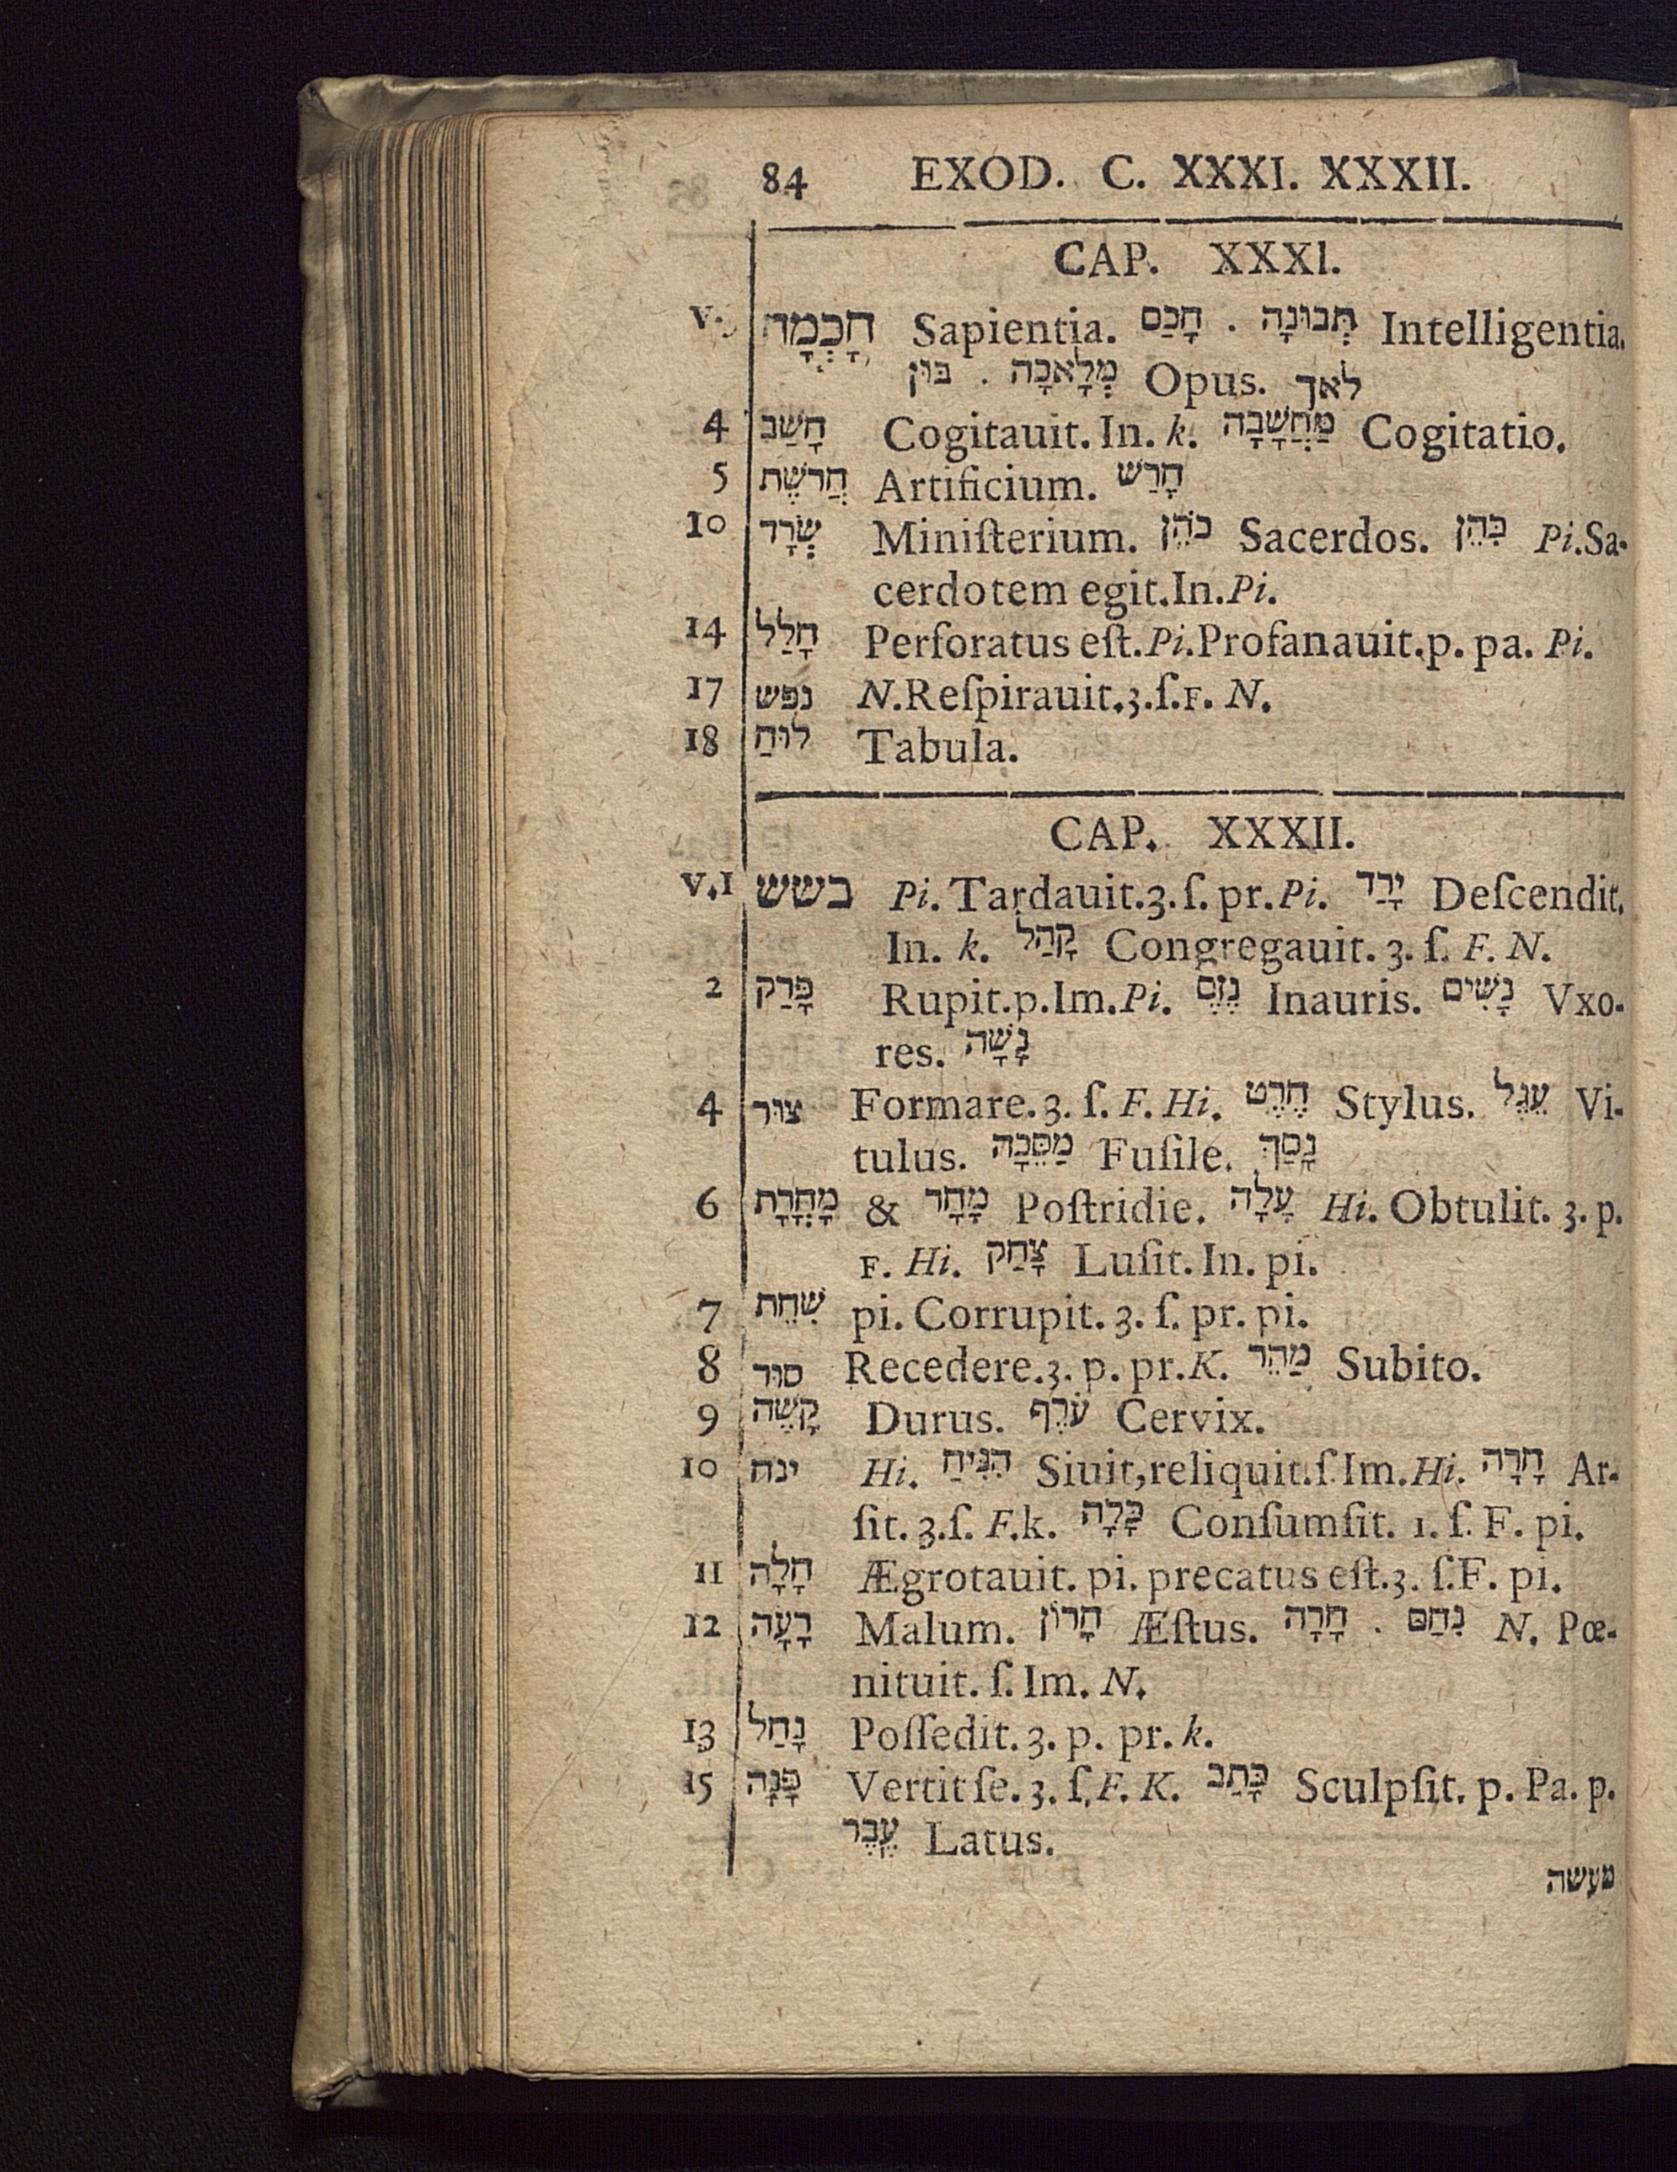 84 EXOD. C. XXXI. XXXII.
CAP. XXXI.
v. חָכְמָה Sapientia. חָכַם . תְּבוּנָה Intelligentia.
בּוּן . מְלָאכָה Opus. לאך
4 חָשַׁב Cogitauit. In. k. מַחֲשָׁבָה Cogitatio.
5 חֲרשֶׁת Artificium. חָרַשׁ
10 שְׂרָד Miniſterium. כֹּהֵן Sacerdos. כִּהֵן Pi. Sa-
cerdotem egit. In. Pi.
14 חָלַל Perforatus eſt. Pi. Profanauit. p. pa. Pi.
17 נפש N. Reſpirauit. 3. ſ. F. N.
18 לוּחַ Tabula.
CAP. XXXII.
V. 1 בשש Pi. Tardauit. 3. ſ. pr. Pi. יָרַד Deſcendit.
In. k. קָהַל Congregauit. 3. ſ. F. N.
2 פָּרַק Rupit. p. Im. Pi. נֶזֶם Inauris. נָשִׁים Vxo-
res. נָשָׁה
4 צור Formare. 3. ſ. F. Hi. חֶרֶט Stylus. עֵגֶל Vi-
tulus. מַסֵּכָה Fuſile. נָסַךְ
6 מָחֳרָת & מָחָר Poſtridie. עָלָה Hi. Obtulit. 3. p.
F. Hi. צָחַק Luſit. In. pi.
7 שִׁחֵת pi. Corrupit. 3. ſ. pr. pi.
8 סור Recedere. 3. p. pr. K. מַהֵר Subito.
9 קָשֶׁה Durus. עֹרֶף Cervix.
10 ינח Hi. הִנִּיחַ Siuit, reliquit. ſ. Im. Hi. חָרָה Ar-
ſit. 3. ſ. F. k. כָּלָה Conſumſit. 1. ſ. F. pi.
11 חָלָה Ægrotauit. pi. precatus eſt. 3. ſ. F. pi.
12 רָעָה Malum. חָרוֹן Æſtus. חָרָה . נִחַם N. Pœ-
nituit. ſ. Im. N.
13 נָחַל Poſſedit. 3. p. pr. k.
15 פָּנָה Vertit ſe. 3. ſ. F. K. כָּתַב Sculpſit. p. Pa. p.
עֶבֶר Latus.
מעשה